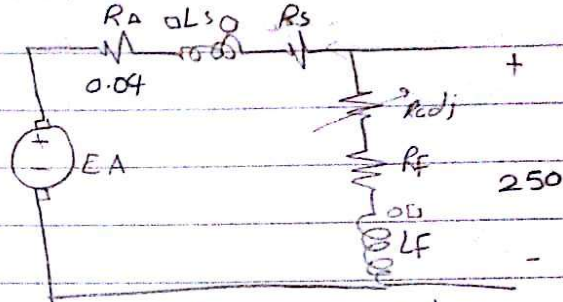 RA Ls Rs
0.04
+
Radj
+
EA
-
RF
250
LF
-